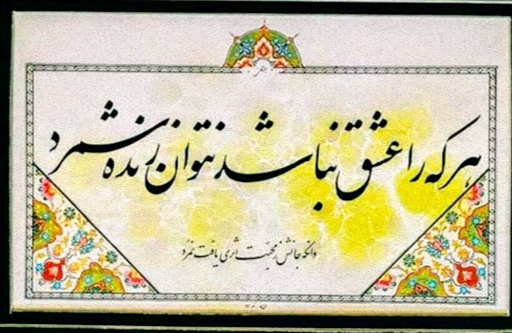 هر که را عشق نباشد نتوان زنده شمرد
وانکه جانش ز محبت اثری یافت نمرد